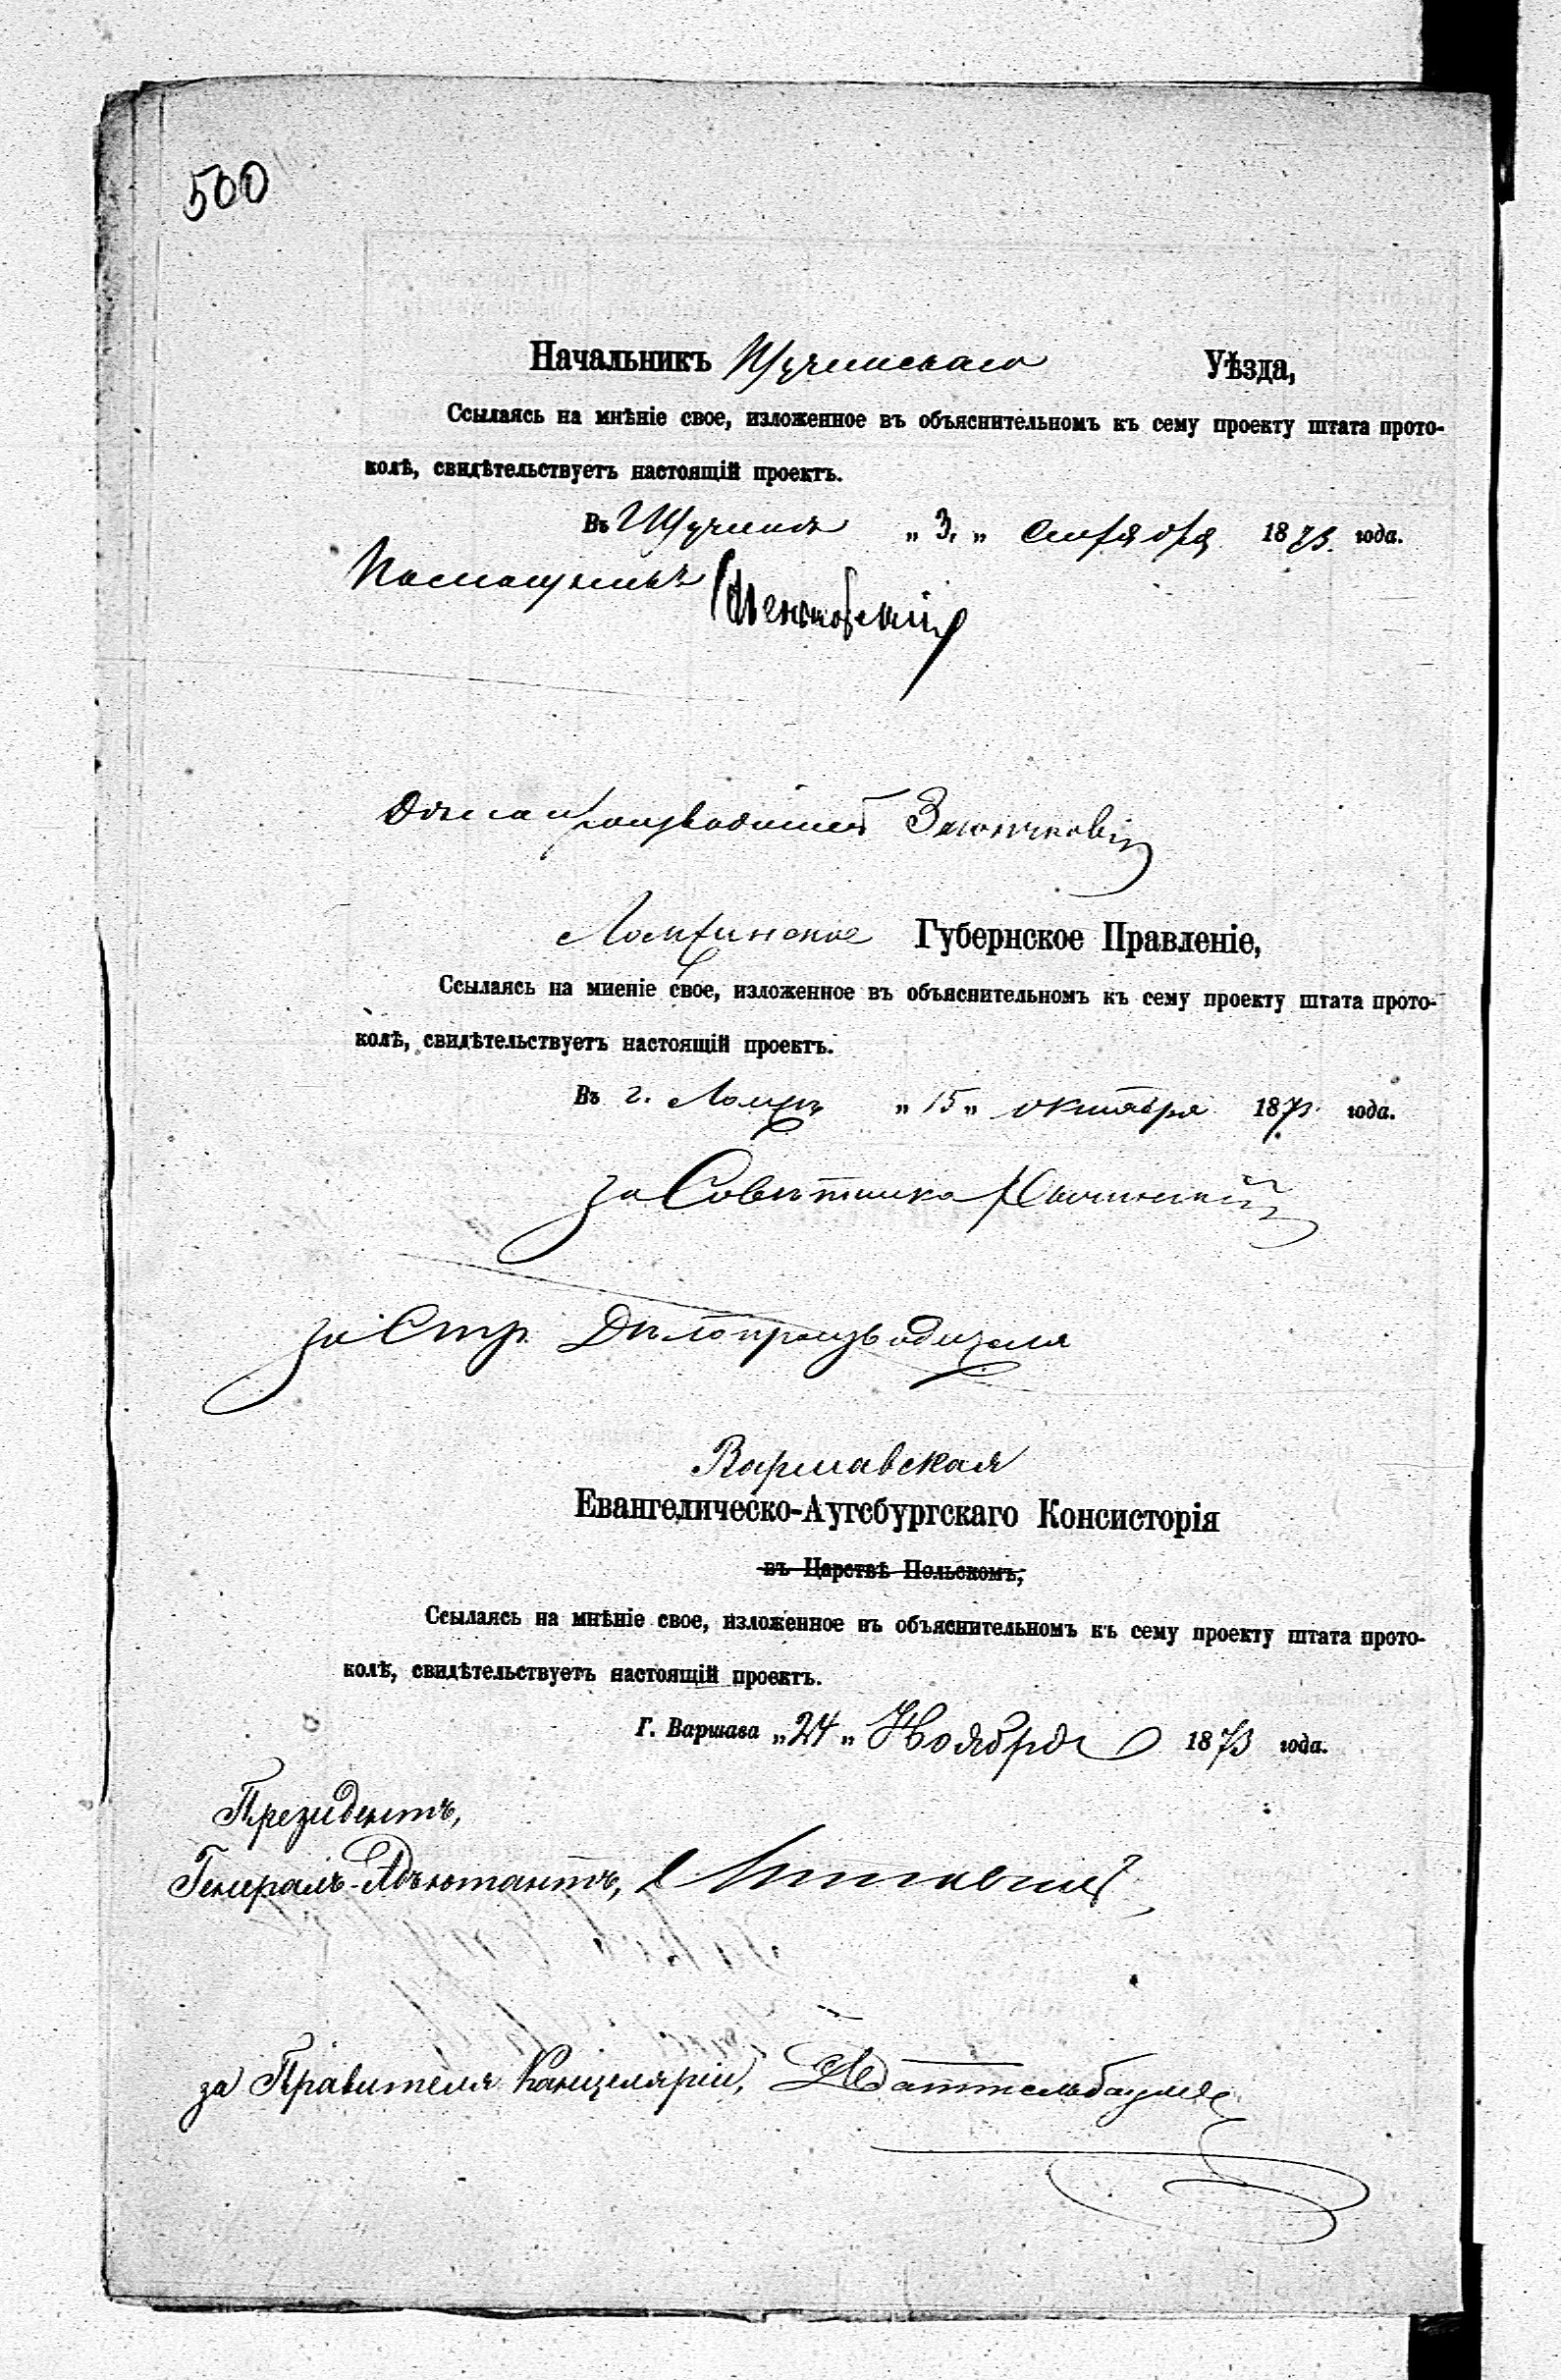 500
Начальникъ Щучинскаго Уѣзда,
Ссылаясь на мнѣніе свое, изложенное въ объяснительномъ къ сему проекту штата прото-
колѣ, свидѣтельствуетъ настоящій проектъ.
Въ Щучинѣ „ 3 „ сентября 1873 года.
Помощникъ
Дѣлопроизводитель
Ломжинское Губернское Правленіе,
Ссылаясь на миеніе свое, изложенное въ объяснительномъ къ сему проекту штата прото-
колѣ, свидѣтельствуетъ настоящій проектъ.
Въ г. Ломжѣ „ 15 „ октября 1873 года.
за Совѣтника
за Стр. Дѣлопроизводителя
Варшавская
Евангелическо-Аугсбургскаго Консисторія
въ Царствѣ Польскомъ,
Ссылаясь на мнѣніе свое, изложенное въ объяснительномъ къ сему проекту штата прото-
колѣ, свидѣтельствуетъ настоящій проектъ.
Г. Варшава „ 24 „ Ноября 1873 года.
Президентъ,
Генералъ-Адъютантъ,
за Правителя Канцеляріи,